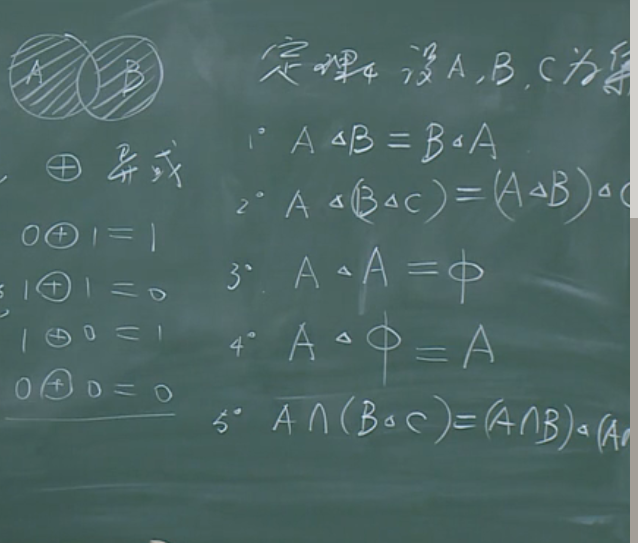 A B
⊕ 异或
0⊕1=1
1⊕1=0
1⊕0=1
0⊕0=0
定理4 设A,B,C为集
1° A△B=B△A
2° A△(B△C)=(A△B)△C
3° A△A=ф
4° A△ф=A
5° A∩(B△C)=(A∩B)△(A∩